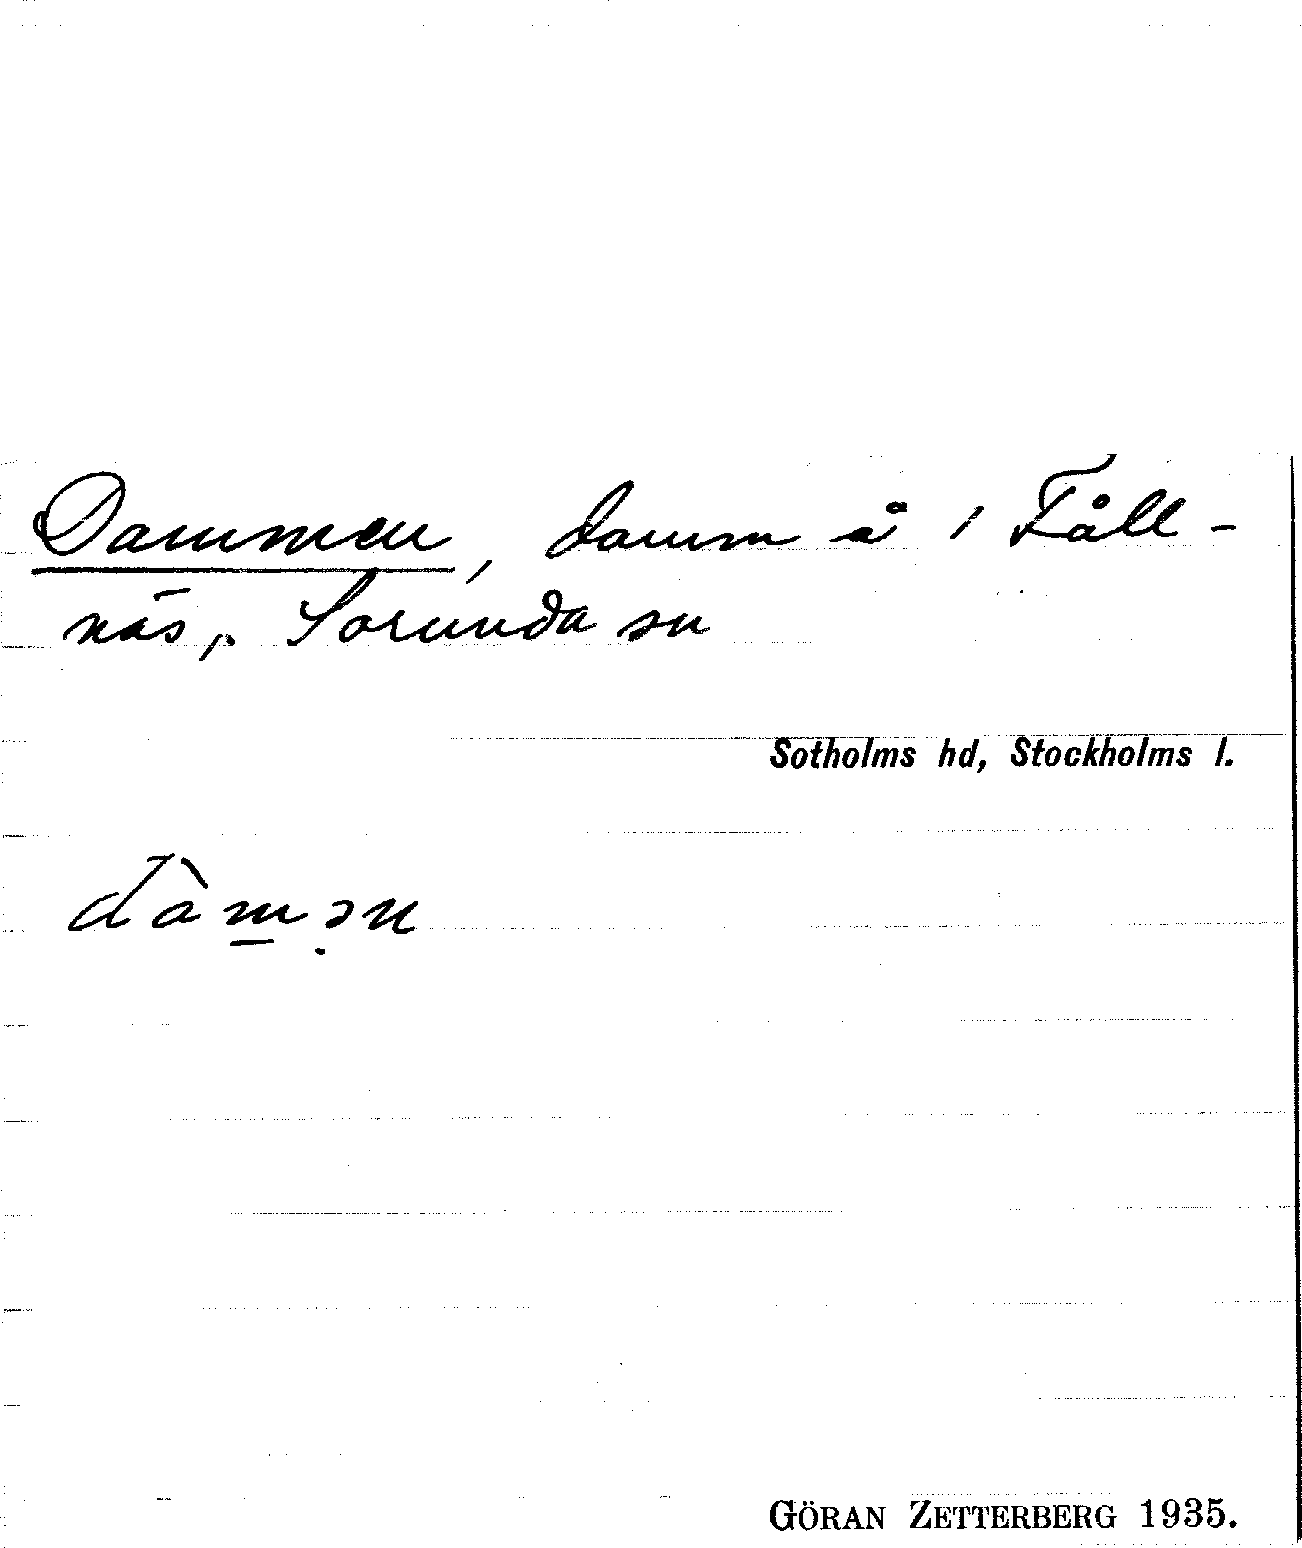 Dammen, damm å 1 Fåll-
näs, Sorunda sn
Sotholms hd, Stockholms l.
dàm̲ə̣n
GÖRAN ZETTERBERG 1935.